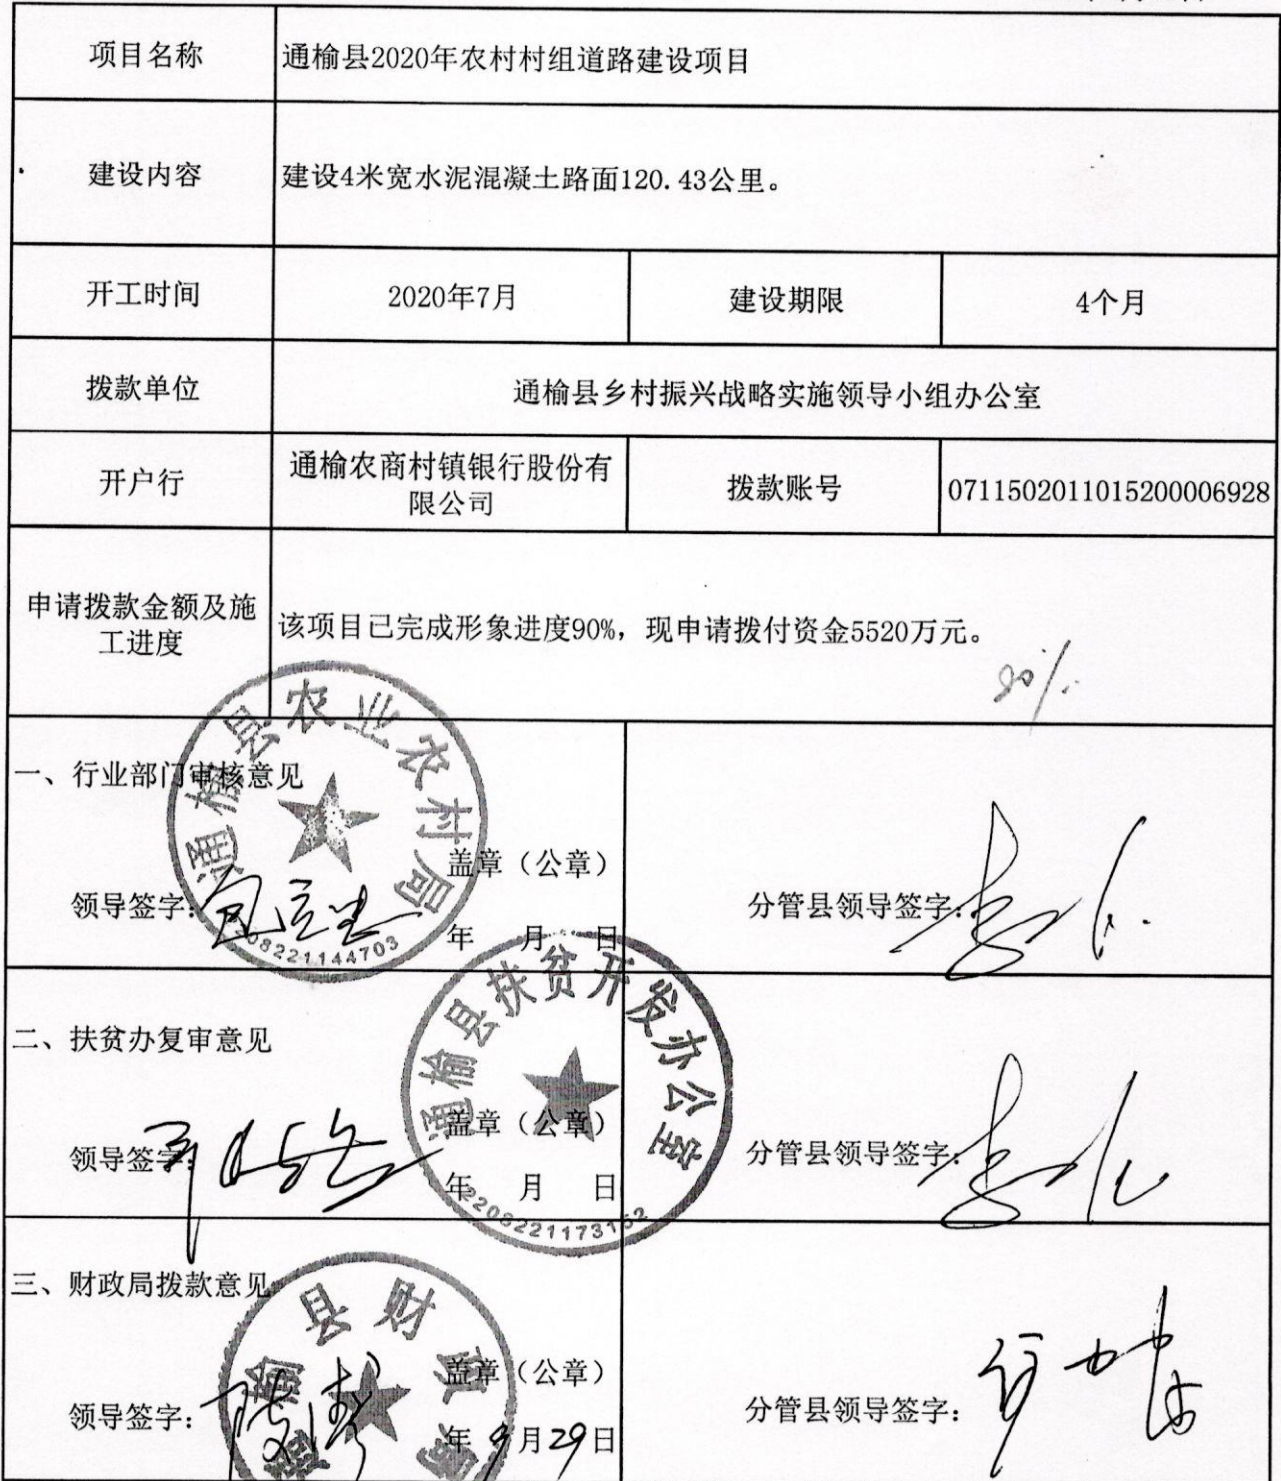 项目名称
通榆县2020年农村村组道路建设项目
建设内容
建设4米宽水泥混凝土路面120.43公里。
开工时间
2020年7月
建设期限
4个月
拨款单位
通榆县乡村振兴战略实施领导小组办公室
开户行
通榆农商村镇银行股份有
限公司
拨款账号
0711502011015200006928
申请拨款金额及施
工进度
该项目已完成形象进度90%，现申请拨付资金5520万元。
90%
一、行业部门审核意见
通榆县农业农村局
盖章（公章）
领导签字：
年 月 日
分管县领导签字：
二、扶贫办复审意见
通榆县扶贫开发办公室
盖章（公章）
领导签字：
年 月 日
分管县领导签字：
三、财政局拨款意见
榆县财政局
盖章（公章）
领导签字：
年 9月29日
分管县领导签字：